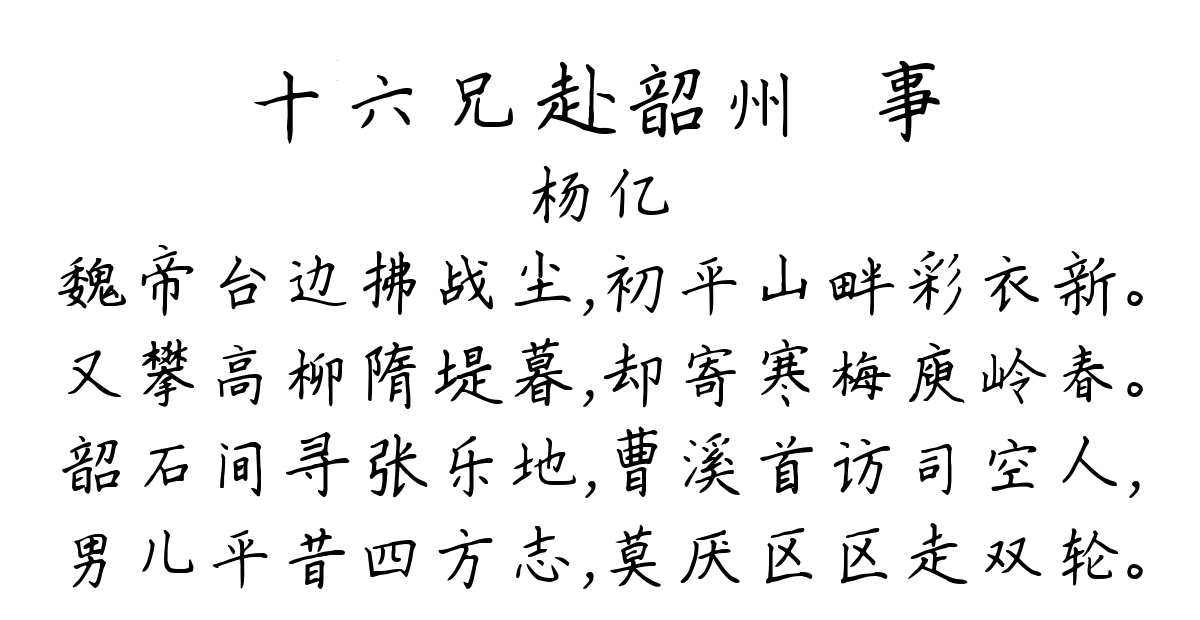 十六兄赴韶州 事
杨亿
魏帝台边拂战尘,初平山畔彩衣新。
又攀高柳隋堤暮,却寄寒梅庾岭春。
韶石间寻张乐地,曹溪首访司空人,
男儿平昔四方志,莫厌区区走双轮。